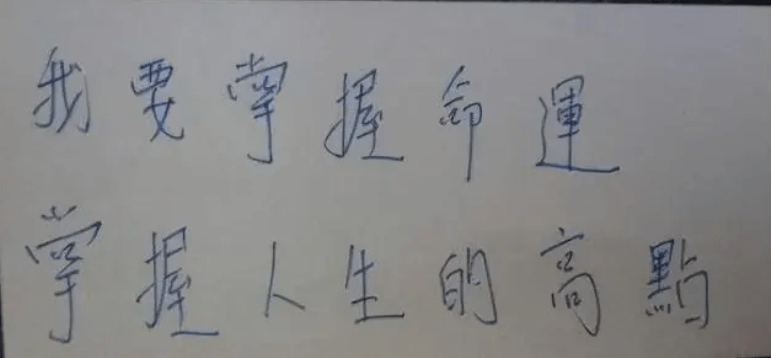 我要掌握命運
掌握人生的高點